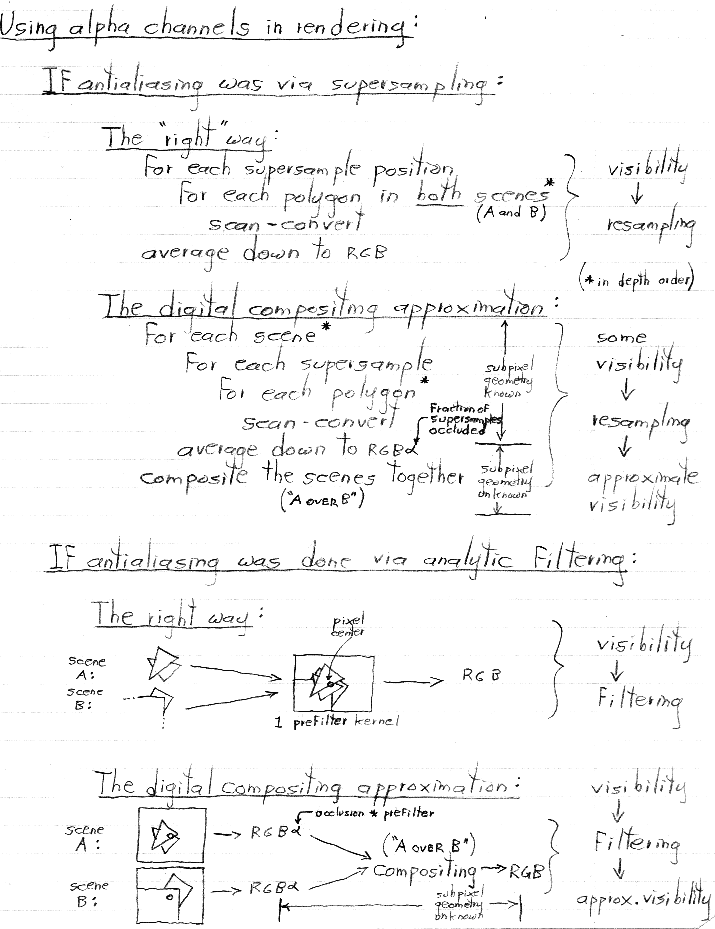 Using alpha channels in rendering:
If antialiasing was via supersampling:
The "right" way:
For each supersample position
For each polygon in both scenes*
(A and B)
scan-convert
average down to RGB
visibility
↓
resampling
(* in depth order)
The digital compositing approximation:
For each scene*
For each supersample
For each polygon*
scan-convert
average down to RGBα
Fraction of
supersamples
occluded
composite the scenes together
("A over B")
subpixel
geometry
known
subpixel
geometry
unknown
some
visibility
↓
resampling
↓
approximate
visibility
If antialiasing was done via analytic Filtering:
The right way:
scene
A:
scene
B:
pixel
center
1 prefilter kernel
→ RGB
visibility
↓
Filtering
The digital compositing approximation:
scene
A:
→ RGBα
occlusion * prefilter
scene
B:
→ RGBα
("A over B")
Compositing → RGB
subpixel
geometry
unknown
visibility
↓
Filtering
↓
approx. visibility